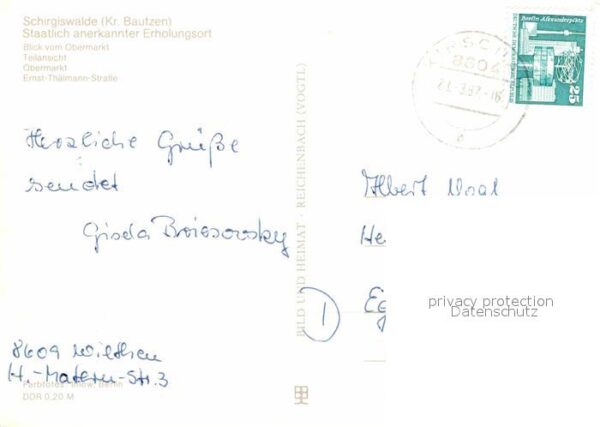 Schirgiswalde (Kr. Bautzen)
Staatlich anerkannter Erholungsort
Blick vom Obermarkt
Teilansicht
Obermarkt
Ernst-Thälmann-Straße
Berlin Alexanderplatz
25
8604
21.-3.87-16
Herzliche Grüße
sendet
Gisela
BILD UND HEIMAT · REICHENBACH (VOGTL)
Albert
He
Eg
1
privacy protection
Datenschutz
8609 Wilthen
H.-Matern-Str. 3
Berlin
DDR 0,20 M